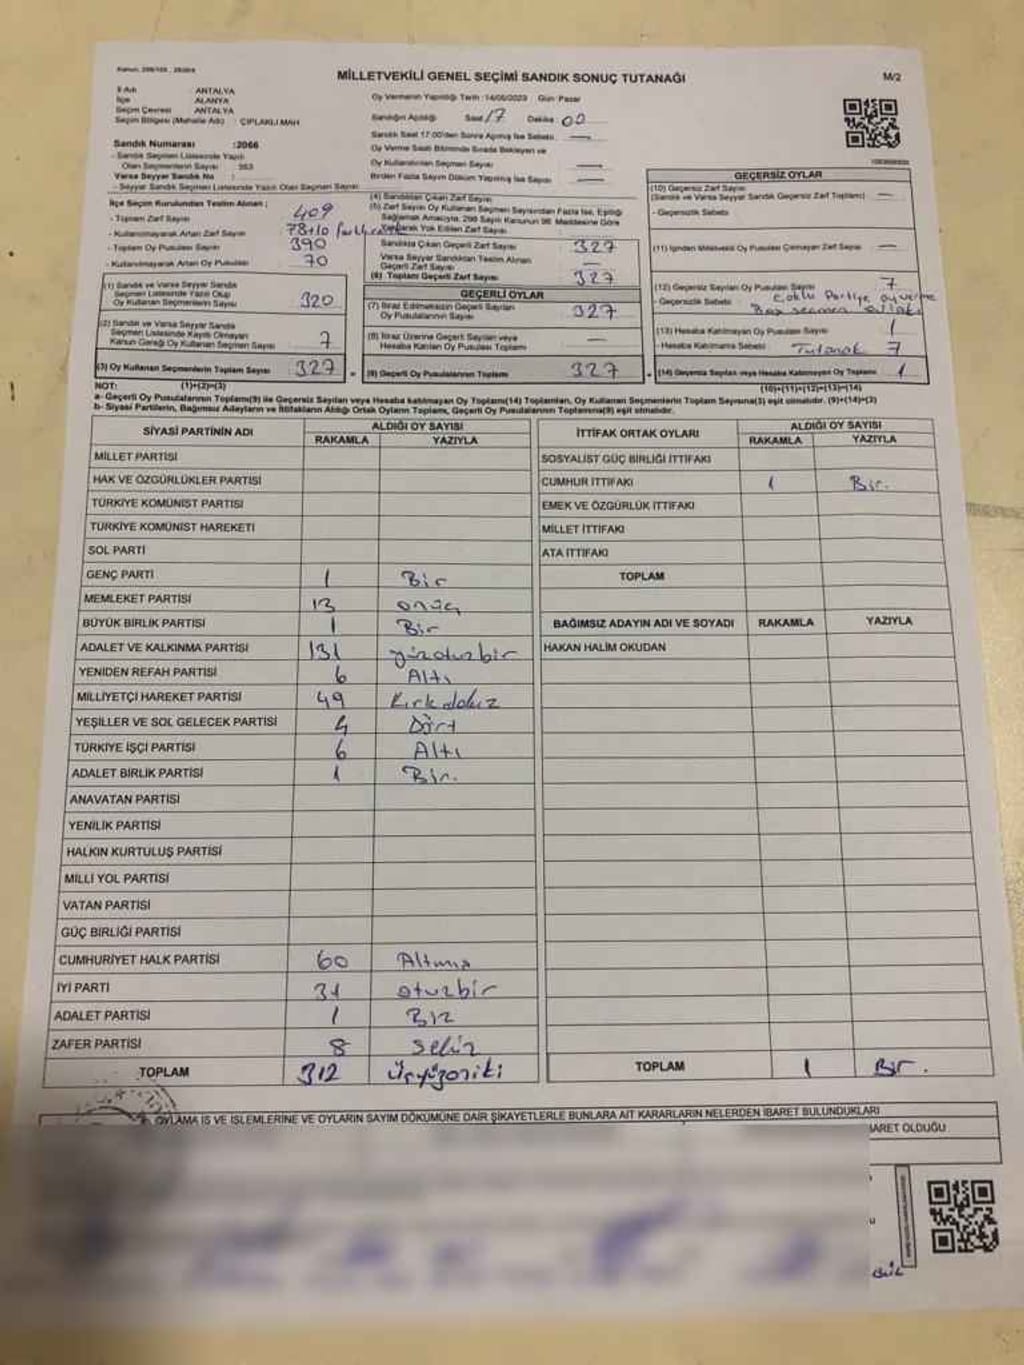 MİLLETVEKİLİ GENEL SEÇİMİ SANDIK SONUÇ TUTANAĞI
M/2
İl Adı : ANTALYA
İlçe : ALANYA
Seçim Çevresi : ANTALYA
Seçim Bölgesi (Mahalle Adı) : ÇIPLAKLI MAH
Sandık Numarası :2066
- Sandık Seçmen Listesinde Yazılı
Olan Seçmenlerin Sayısı : 383
Varsa Seyyar Sandık No :
- Seyyar Sandık Seçmen Listesinde Yazılı Olan Seçmen Sayısı :
Oy Vermenin Yapıldığı Tarih :14/05/2023 Gün:Pazar
Sandığın Açıldığı Saat 17 Dakika 00
Sandık Saat 17.00'den Sonra Açılmış İse Sebebi : —
Oy Verme Saati Bitiminde Sırada Bekleyen ve
Oy Kullandırılan Seçmen Sayısı : —
Birden Fazla Sayım Döküm Yapılmış İse Sayısı : —
İlçe Seçim Kurulundan Teslim Alınan ;
- Toplam Zarf Sayısı : 409
- Kullanılmayarak Artan Zarf Sayısı : 78+10
- Toplam Oy Pusulası Sayısı : 390
- Kullanılmayarak Artan Oy Pusulası : 70
(1) Sandık ve Varsa Seyyar Sandık
Seçmen Listesinde Yazılı Olup
Oy Kullanan Seçmenlerin Sayısı : 320
(2) Sandık ve Varsa Seyyar Sandık
Seçmen Listesinde Kayıtlı Olmayan
Kanun Gereği Oy Kullanan Seçmen Sayısı : 7
(3) Oy Kullanan Seçmenlerin Toplam Sayısı : 327
(4) Sandıktan Çıkan Zarf Sayısı
(5) Zarf Sayısı Oy Kullanan Seçmen Sayısından Fazla İse, Eşitliği
Sağlamak Amacıyla, 298 Sayılı Kanunun 98. Maddesine Göre
Yakılarak Yok Edilen Zarf Sayısı :
Sandıkta Çıkan Geçerli Zarf Sayısı : 327
Varsa Seyyar Sandıktan Teslim Alınan
Geçerli Zarf Sayısı : —
(6) Toplam Geçerli Zarf Sayısı : 327
GEÇERLİ OYLAR
(7) İtiraz Edilmeksizin Geçerli Sayılan
Oy Pusulalarının Sayısı : 327
(8) İtiraz Üzerine Geçerli Sayılan veya
Hesaba Katılan Oy Pusulası Toplamı : —
(9) Geçerli Oy Pusulalarının Toplamı : 327
GEÇERSİZ OYLAR
(10) Geçersiz Zarf Sayısı
(Sandık ve Varsa Seyyar Sandık Geçersiz Zarf Toplamı) : —
- Geçersizlik Sebebi :
(11) İçinden Milletvekili Oy Pusulası Çıkmayan Zarf Sayısı : —
(12) Geçersiz Sayılan Oy Pusulası Sayısı : 7
- Geçersizlik Sebebi : Çoklu Partiye oy verme
(13) Hesaba Katılmayan Oy Pusulası Sayısı : 1
- Hesaba Katılmama Sebebi : Tutanak 7
(14) Geçersiz Sayılan veya Hesaba Katılmayan Oy Toplamı : 1
NOT: (1)+(2)=(3) (10)+(11)+(12)+(13)=(14)
a- Geçerli Oy Pusulalarının Toplamı(9) ile Geçersiz Sayılan veya Hesaba katılmayan Oy Toplamı(14) Toplamları, Oy Kullanan Seçmenlerin Toplam Sayısına(3) eşit olmalıdır. (9)+(14)=(3)
b- Siyasi Partilerin, Bağımsız Adayların ve İttifakların Aldığı Ortak Oyların Toplamı, Geçerli Oy Pusulalarının Toplamına(9) eşit olmalıdır.
SİYASİ PARTİNİN ADI ALDIĞI OY SAYISI
RAKAMLA YAZIYLA
MİLLET PARTİSİ
HAK VE ÖZGÜRLÜKLER PARTİSİ
TÜRKİYE KOMÜNİST PARTİSİ
TÜRKİYE KOMÜNİST HAREKETİ
SOL PARTİ
GENÇ PARTİ 1 Bir
MEMLEKET PARTİSİ 13 onüç
BÜYÜK BİRLİK PARTİSİ 1 Bir
ADALET VE KALKINMA PARTİSİ 131 yüzotuzbir
YENİDEN REFAH PARTİSİ 6 Altı
MİLLİYETÇİ HAREKET PARTİSİ 49 Kırkdokuz
YEŞİLLER VE SOL GELECEK PARTİSİ 4 Dört
TÜRKİYE İŞÇİ PARTİSİ 6 Altı
ADALET BİRLİK PARTİSİ 1 Bir.
ANAVATAN PARTİSİ
YENİLİK PARTİSİ
HALKIN KURTULUŞ PARTİSİ
MİLLİ YOL PARTİSİ
VATAN PARTİSİ
GÜÇ BİRLİĞİ PARTİSİ
CUMHURİYET HALK PARTİSİ 60 Altmış
İYİ PARTİ 31 otuzbir
ADALET PARTİSİ 1 Bir
ZAFER PARTİSİ 8 Sekiz
TOPLAM 312 üçyüzoniki
İTTİFAK ORTAK OYLARI ALDIĞI OY SAYISI
RAKAMLA YAZIYLA
SOSYALİST GÜÇ BİRLİĞİ İTTİFAKI
CUMHUR İTTİFAKI 1 Bir.
EMEK VE ÖZGÜRLÜK İTTİFAKI
MİLLET İTTİFAKI
ATA İTTİFAKI
TOPLAM
BAĞIMSIZ ADAYIN ADI VE SOYADI RAKAMLA YAZIYLA
HAKAN HALİM OKUDAN
TOPLAM 1 Bir.
OYLAMA İŞ VE İŞLEMLERİNE VE OYLARIN SAYIM DÖKÜMÜNE DAİR ŞİKAYETLERLE BUNLARA AİT KARARLARIN NELERDEN İBARET BULUNDUKLARI
BARET OLDUĞU